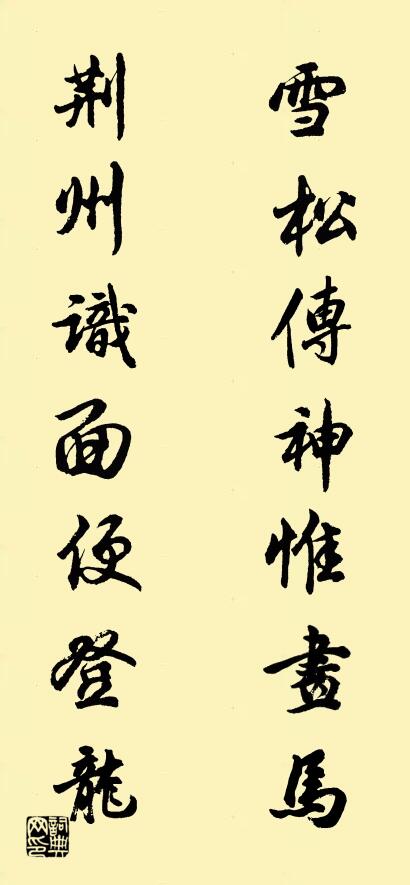 雪松傳神惟畫馬
荆州識面便登龍
詞典网印